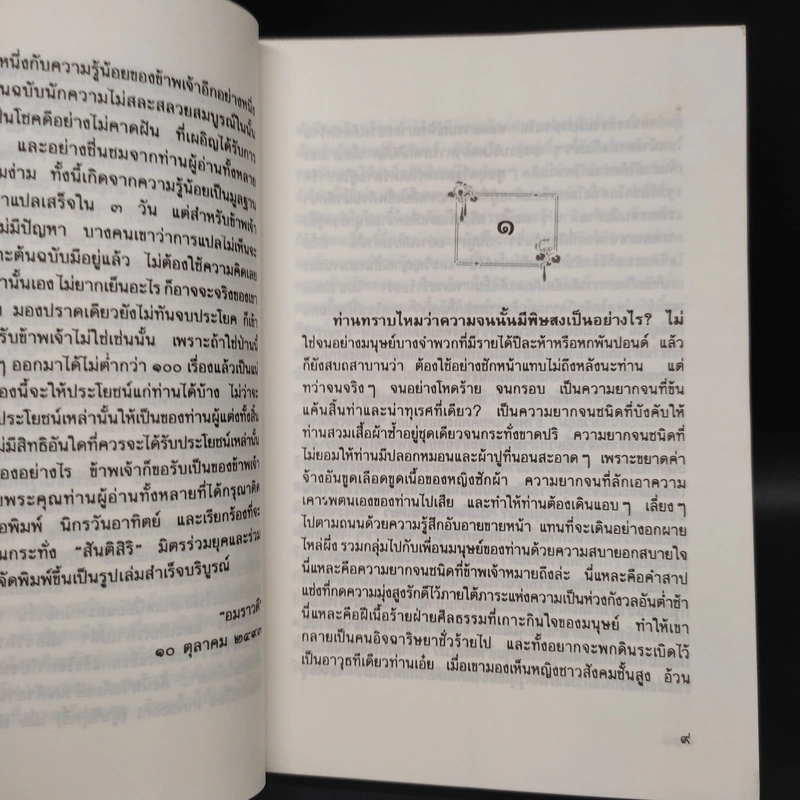 หนึ่งกับความรู้น้อยของข้าพเจ้าอีกอย่างหนึ่ง
นฉบับนักความไม่สละสลวยสมบูรณ์ในนั้น
ป็นโชคดีอย่างไม่คาดฝัน ที่เผอิญได้รับการ
และอย่างชื่นชมจากท่านผู้อ่านทั้งหลาย
มง่าม ทั้งนี้เกิดจากความรู้น้อยเป็นมูลฐาน
าแปลเสร็จใน ๓ วัน แต่สำหรับข้าพเจ้า
ม่มีปัญหา บางคนเขาว่าการแปลไม่เห็นจะ
าะต้นฉบับมีอยู่แล้ว ไม่ต้องใช้ความคิดเลย
านั้นเอง ไม่ยากเย็นอะไร ก็อาจจะจริงของเขา
มองปราดเดียวยังไม่ทันจบประโยค ก็เข้า
รับข้าพเจ้าไม่ใช่เช่นนั้น เพราะถ้าใช่ป่านนี้
ๆ ออกมาได้ไม่ต่ำกว่า ๑๐๐ เรื่องแล้วเป็นแน่
องนี้จะให้ประโยชน์แก่ท่านได้บ้าง ไม่ว่าจะ
ประโยชน์เหล่านั้นให้เป็นของท่านผู้แต่งทั้งสิ้น
ม่มีสิทธิอันใดที่ควรจะได้รับประโยชน์เหล่านั้น
องอย่างไร ข้าพเจ้าก็ขอรับเป็นของข้าพเจ้า
ยพระคุณท่านผู้อ่านทั้งหลายที่ได้กรุณาติด
อพิมพ์ นิกรวันอาทิตย์ และเรียกร้องที่จะ
นกระทั่ง “สันติสิริ” มิตรร่วมยุคและร่วม
จัดพิมพ์ขึ้นเป็นรูปเล่มสำเร็จบริบูรณ์
“อมราวดี”
๑๐ ตุลาคม ๒๔๙๓
๑
ท่านทราบไหมว่าความจนนั้นมีพิษสงเป็นอย่างไร? ไม่
ใช่จนอย่างมนุษย์บางจำพวกที่มีรายได้ปีละห้าหรือหกพันปอนด์ แล้ว
ก็ยังสบถสาบานว่า ต้องใช้อย่างชักหน้าแทบไม่ถึงหลังนะท่าน แต่
ทว่าจนจริงๆ จนอย่างโหดร้าย จนกรอบ เป็นความยากจนที่ขัน
แค้นสิ้นท่าและน่าทุเรศทีเดียว? เป็นความยากจนชนิดที่บังคับให้
ท่านสวมเสื้อผ้าซ้ำอยู่ชุดเดียวจนกระทั่งขาดปริ ความยากจนชนิดที่
ไม่ยอมให้ท่านมีปลอกหมอนและผ้าปูที่นอนสะอาดๆ เพราะขยาดค่า
จ้างอันขูดเลือดขูดเนื้อของหญิงซักผ้า ความยากจนที่ลักเอาความ
เคารพตนเองของท่านไปเสีย และทำให้ท่านต้องเดินแอบๆ เลี่ยงๆ
ไปตามถนนด้วยความรู้สึกอับอายขายหน้า แทนที่จะเดินอย่างอกผาย
ไหล่ผึ่ง รวมกลุ่มไปกับเพื่อนมนุษย์ของท่านด้วยความสบายอกสบายใจ
นี่แหละคือความยากจนชนิดที่ข้าพเจ้าหมายถึงล่ะ นี่แหละคือคำสาป
แช่งที่กดความมุ่งสูงรักดีไว้ภายใต้ภาระแห่งความเป็นห่วงกังวลอันต่ำช้า
นี่แหละคือฝีเนื้อร้ายฝ่ายศีลธรรมที่เกาะกินใจของมนุษย์ ทำให้เขา
กลายเป็นคนอิจฉาริษยาชั่วร้ายไป และทั้งอยากจะพกดินระเบิดไว้
เป็นอาวุธทีเดียวท่านเอ๋ย เมื่อเขามองเห็นหญิงชาวสังคมชั้นสูง อ้วน
๙